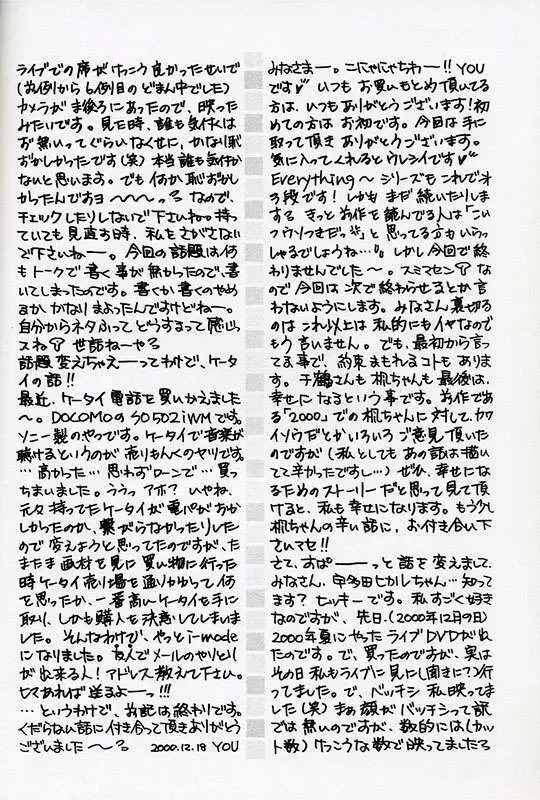 みなさまー。こにゃにゃちわー!! YOU
です♥ いつも お買いもとめ頂いてる
方は、いつもありがとうございます!初
めての方は お初です。今回は手に
取って頂き ありがとうございます。
気に入ってくれるとウレシイです♥
Everything〜シリーズもこれでオ
3段です!しかも まだ続いたりしま
する きっと前作を読んでる人は「こい
つウソつきだっ」と思ってる方もいらっ
しゃるでしょうね…。しかし今回で終
わりませんでした〜。スミマセン な
ので今回は 次で終わらせるとか言
わないようにします。みなさん裏切る
のは これ以上は 私的にもイヤなので
もう言いません。でも、最初から言っ
てる事で、約束まもれるコトもありま
す。千鶴さんも 梶ちゃんも 最後は、
幸せになるという事です。前作であ
る「2000」での梶ちゃんに対して、カワ
イソウだとかいろいろ ご意見頂いた
のですが(私としても あの話は描い
てて辛かったですし…)ぜひ、幸せにな
るためのストーリーだと思って見て頂
けると、私も幸せになります。もう少し
梶ちゃんの辛い話に、お付き合い下
さいマセ!!
さて、すぱーーーっと 話を変えまして、
みなさん、宇多田ヒカルちゃん…知って
ます? ヒッキーです。私すごく好き
なのですが、先日(2000年12月9日)
2000年夏にやった ライブDVDが出
たのです。で、買ったのですが、実は
その日 私もライブに 見に(聞きに?)行
ってました。で、バッチシ 私映ってま
した(笑) まぁ 顔が バッチシって訳
では無いのですが、数的には(カッ
ト数)けっこうな数で映ってましたっ
ライブでの席がけっこう良かったせいで
(前列から6例目のどまん中でした)
カメラが ま後ろにあったので、映った
みたいです。見た時、誰も気付くは
ずが無いってぐらいなくせに、かなり恥
ずかしかったです(笑) 本当誰も気付か
ないと思います。でも 何か恥ずかし
かったんですヨ〜〜〜っ なので、
チェックしたりしないで下さいね。持っ
ていても見直す時、私をさがさない
で下さいねー。今回の話題は何
もトークで書く事が無かったので、書
いてしまったのです。書くか書くのやめ
るか かなり まよったんですけどねー。
自分からネタふって どうするって感じっ
スね 世話ねーやっ
話題 変えちゃえーってわけで、ケータ
イの話!!
最近、ケータイ電話を買いかえました
〜。DOCOMOのSO502iWMです。
ソニー製のやつです。ケータイで音楽が
聴けるというのが 売りもんくのヤツです
…高かった…思わずローンで…買っ
ちまいました。ううっ アホ? いやね、
元々持ってたケータイが電パがおか
しかったのか、繋がらなかったりした
ので 変えようと思ってたのですが、た
またま画材を見に 買い物に行った
時ケータイ売り場を通りかかって 何
を思ったか、一番高いケータイを手に
取り、しかも購入を決意してしまいま
した。そんなわけで、やっとi-mode
になりました。友人でメールのやりとり
が出来る人!アドレス教えて下さい。
ヒマあれば 送るよーっ!!!
…というわけで、お記は終わりです。
くだらない話に付き合って頂きありがとう
ございました〜っ 2000.12.18 YOU